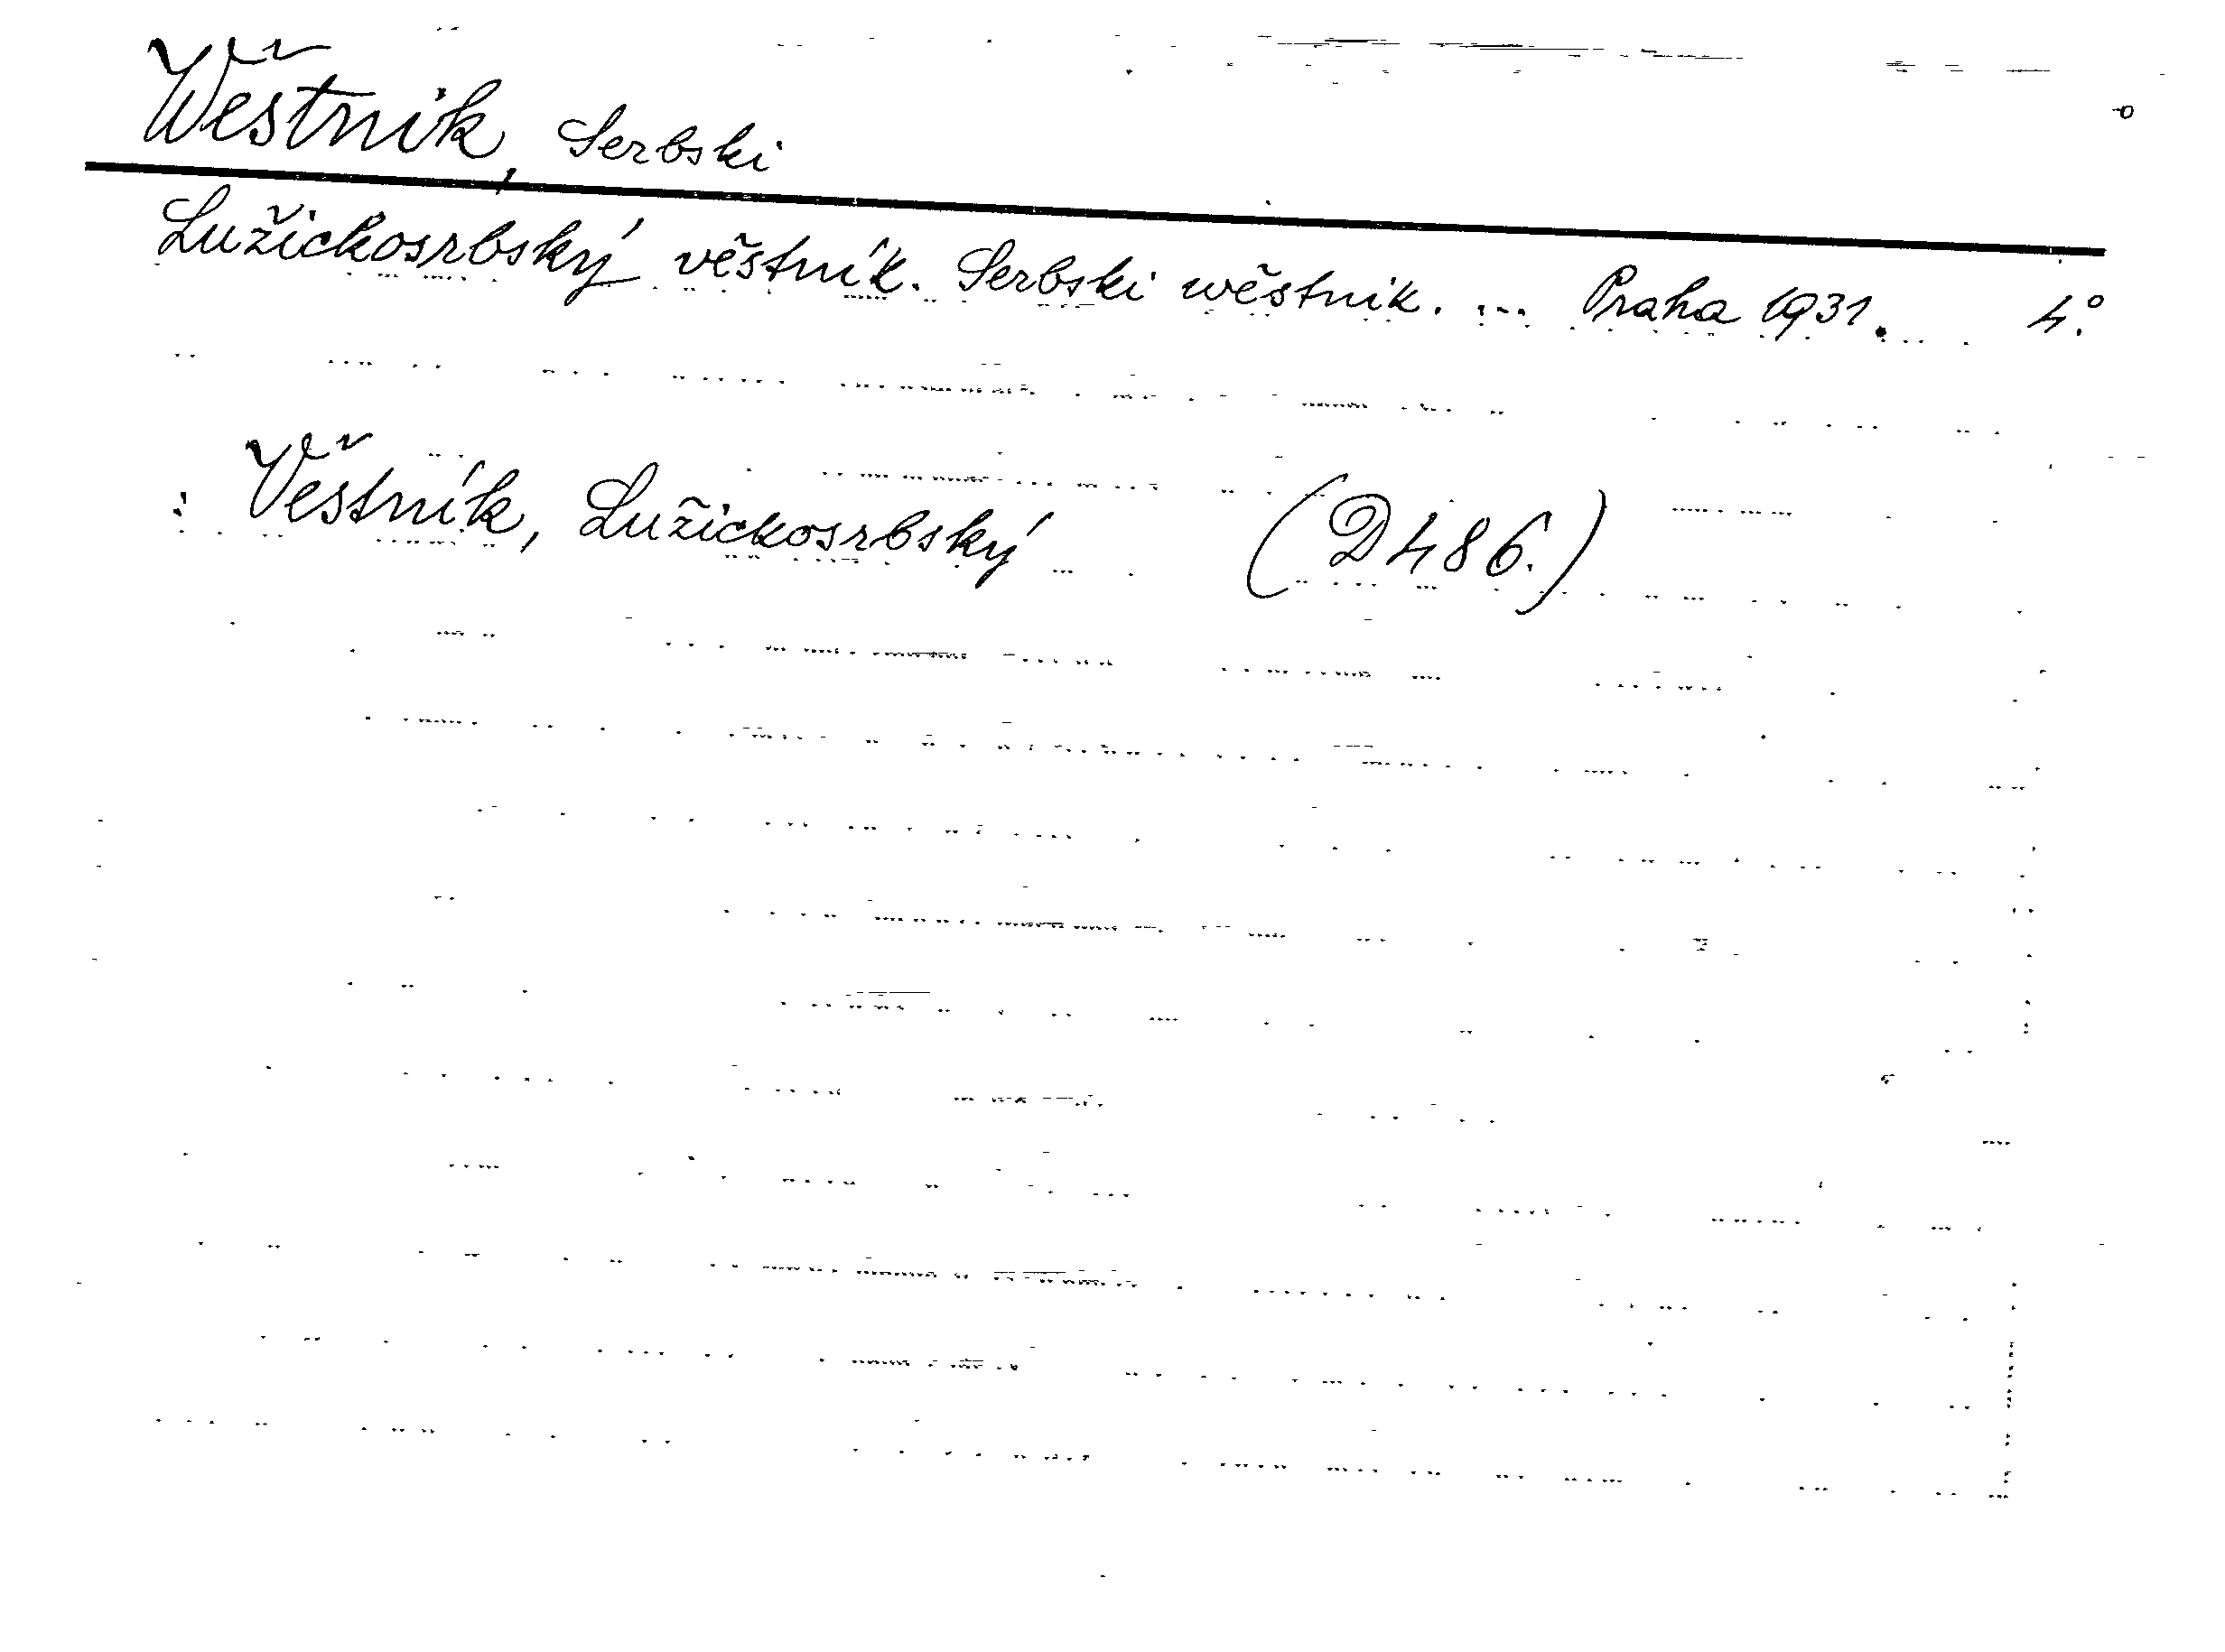 Wěstnik, Serbski
Lužickosrbský věstník. Serbski wěstnik. ... Praha 1931. 4°.
: Věstník, Lužickosrbský (D 486.)